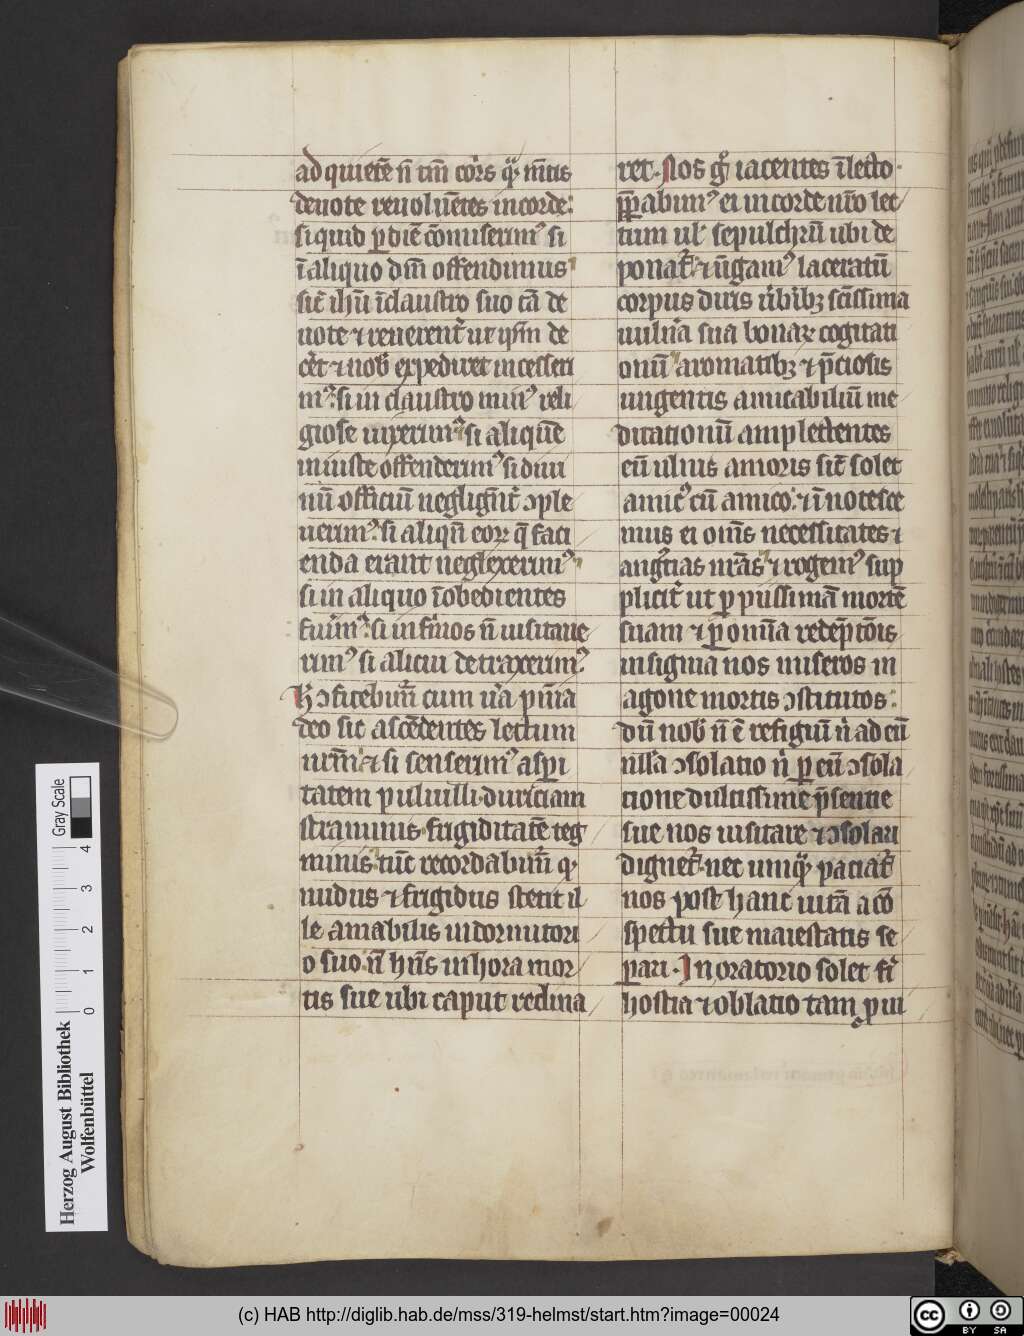 ad quietē n̄ tm̄ corꝰis qͣꝫ mentis
deuote reuoluētes in corde:
si quid p̱ diē cōmiserimꝰ si
ī aliquo dn̄m offendimus
sic̄ ihū ī claustro suo tā de
uote ⁊ reuerent᷒ ut q̱sm̄ de
cet ⁊ nob̄ expediret incesseri
mꝰ: si in claustro minꝰ reli
giose uixerimꝰ si aliquē
iniuste offenderimꝰ si diui
nū officiū negligent᷒ ↄple
uerimꝰ: si aliqn̄ eoꝝ q̄ faci
enda erant neglexerimꝰ
si in aliquo īobedientes
fuimꝰ: si infirmos n̄ uisitaue
rimꝰ si alicui detraxerimꝰ.
H̄ ↄfitebimur cum uera penitentia
deo sic ascēdentes lectum
nr̄m ⁊ si senserimꝰ asp̱i
tatem puluilli. duriciam
straminis frigiditatē teg
minis tūc recordabimur qꝫ
nudus ⁊ frigidus stetit il
le amabilis in dormitori
o suo n̄ hn̄s in hora mor
tis sue ubi caput reclina
ret. Nos gͦ iacentes ī lecto
p̄parabimꝰ ei in corde nr̄o lec
tum ul̓ sepulchrū ubi de
ponat᷒ ⁊ ūgamꝰ laceratū
corpus duris uerberibꝫ scissima
uulnera sua bonaꝝ cogitati
onū aromatibꝫ ⁊ p̄ciosis
ungentis amicabiliū me
ditationū amplectentes
eū ulnis amoris sic̄ solet
amicꝰ cū amico: ⁊ īnotesce
mus ei om̄s necessitates ⁊
angustias nr̄as ⁊ rogemꝰ sup
plicit᷒ ut p̱ piissimā mortē
suam ⁊ p̱ omīa redēptōis
insignia nos miseros in
agone mortis ↄstitutos.
dū nob̄ n̄ ē refugiū nͥ ad eū
nulla ↄsolatio nͥ p̱ eū ↄsola
tione dulcissime p̄sentie
sue nos uisitare ⁊ ↄsolari
dignet᷒. nec umqͣꝫ paciat᷒
nos post hanc uitā a cō
spectu sue maiestatis se
pari. In oratorio solet fi̓
hostia ⁊ oblatio tam p̱ ui
Herzog August Bibliothek
Wolfenbüttel
Gray Scale
0 1 2 3 4
(c) HAB http://diglib.hab.de/mss/319-helmst/start.htm?image=00024
cc BY SA